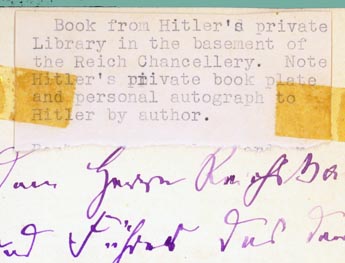 Book from Hitler's private
Library in the basement of
the Reich Chancellery. Note
Hitler's private book plate
and personal autograph to
Hitler by author.
Herrn
und Führer das